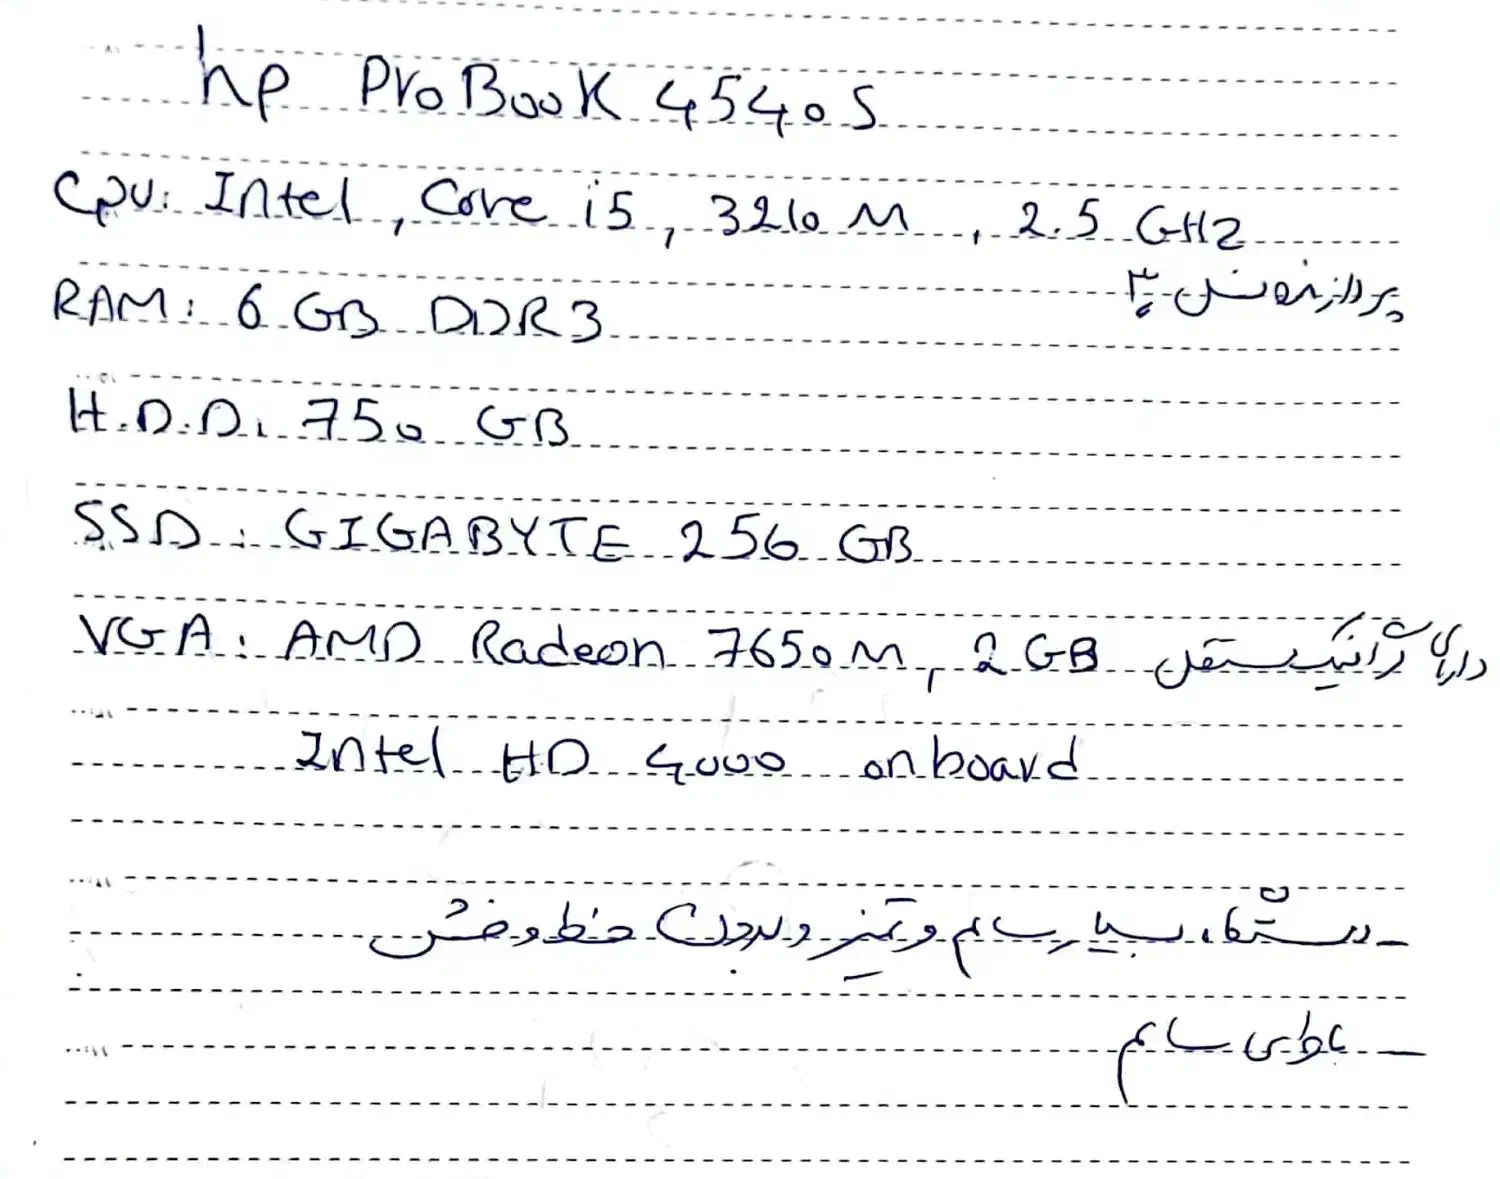 hp ProBook 4540S
Cpu: Intel, Core i5, 3210 M, 2.5 GHz
پردازنده نسل ۳
RAM: 6 GB DDR3
H.D.D: 750 GB
SSD: GIGABYTE 256 GB
VGA: AMD Radeon 7650 M, 2 GB دارای گرافیک مستقل
Intel HD 4000 onboard
- دستگاه بسیار سالم و تمیز و بدون خط و خش
- باطری سالم